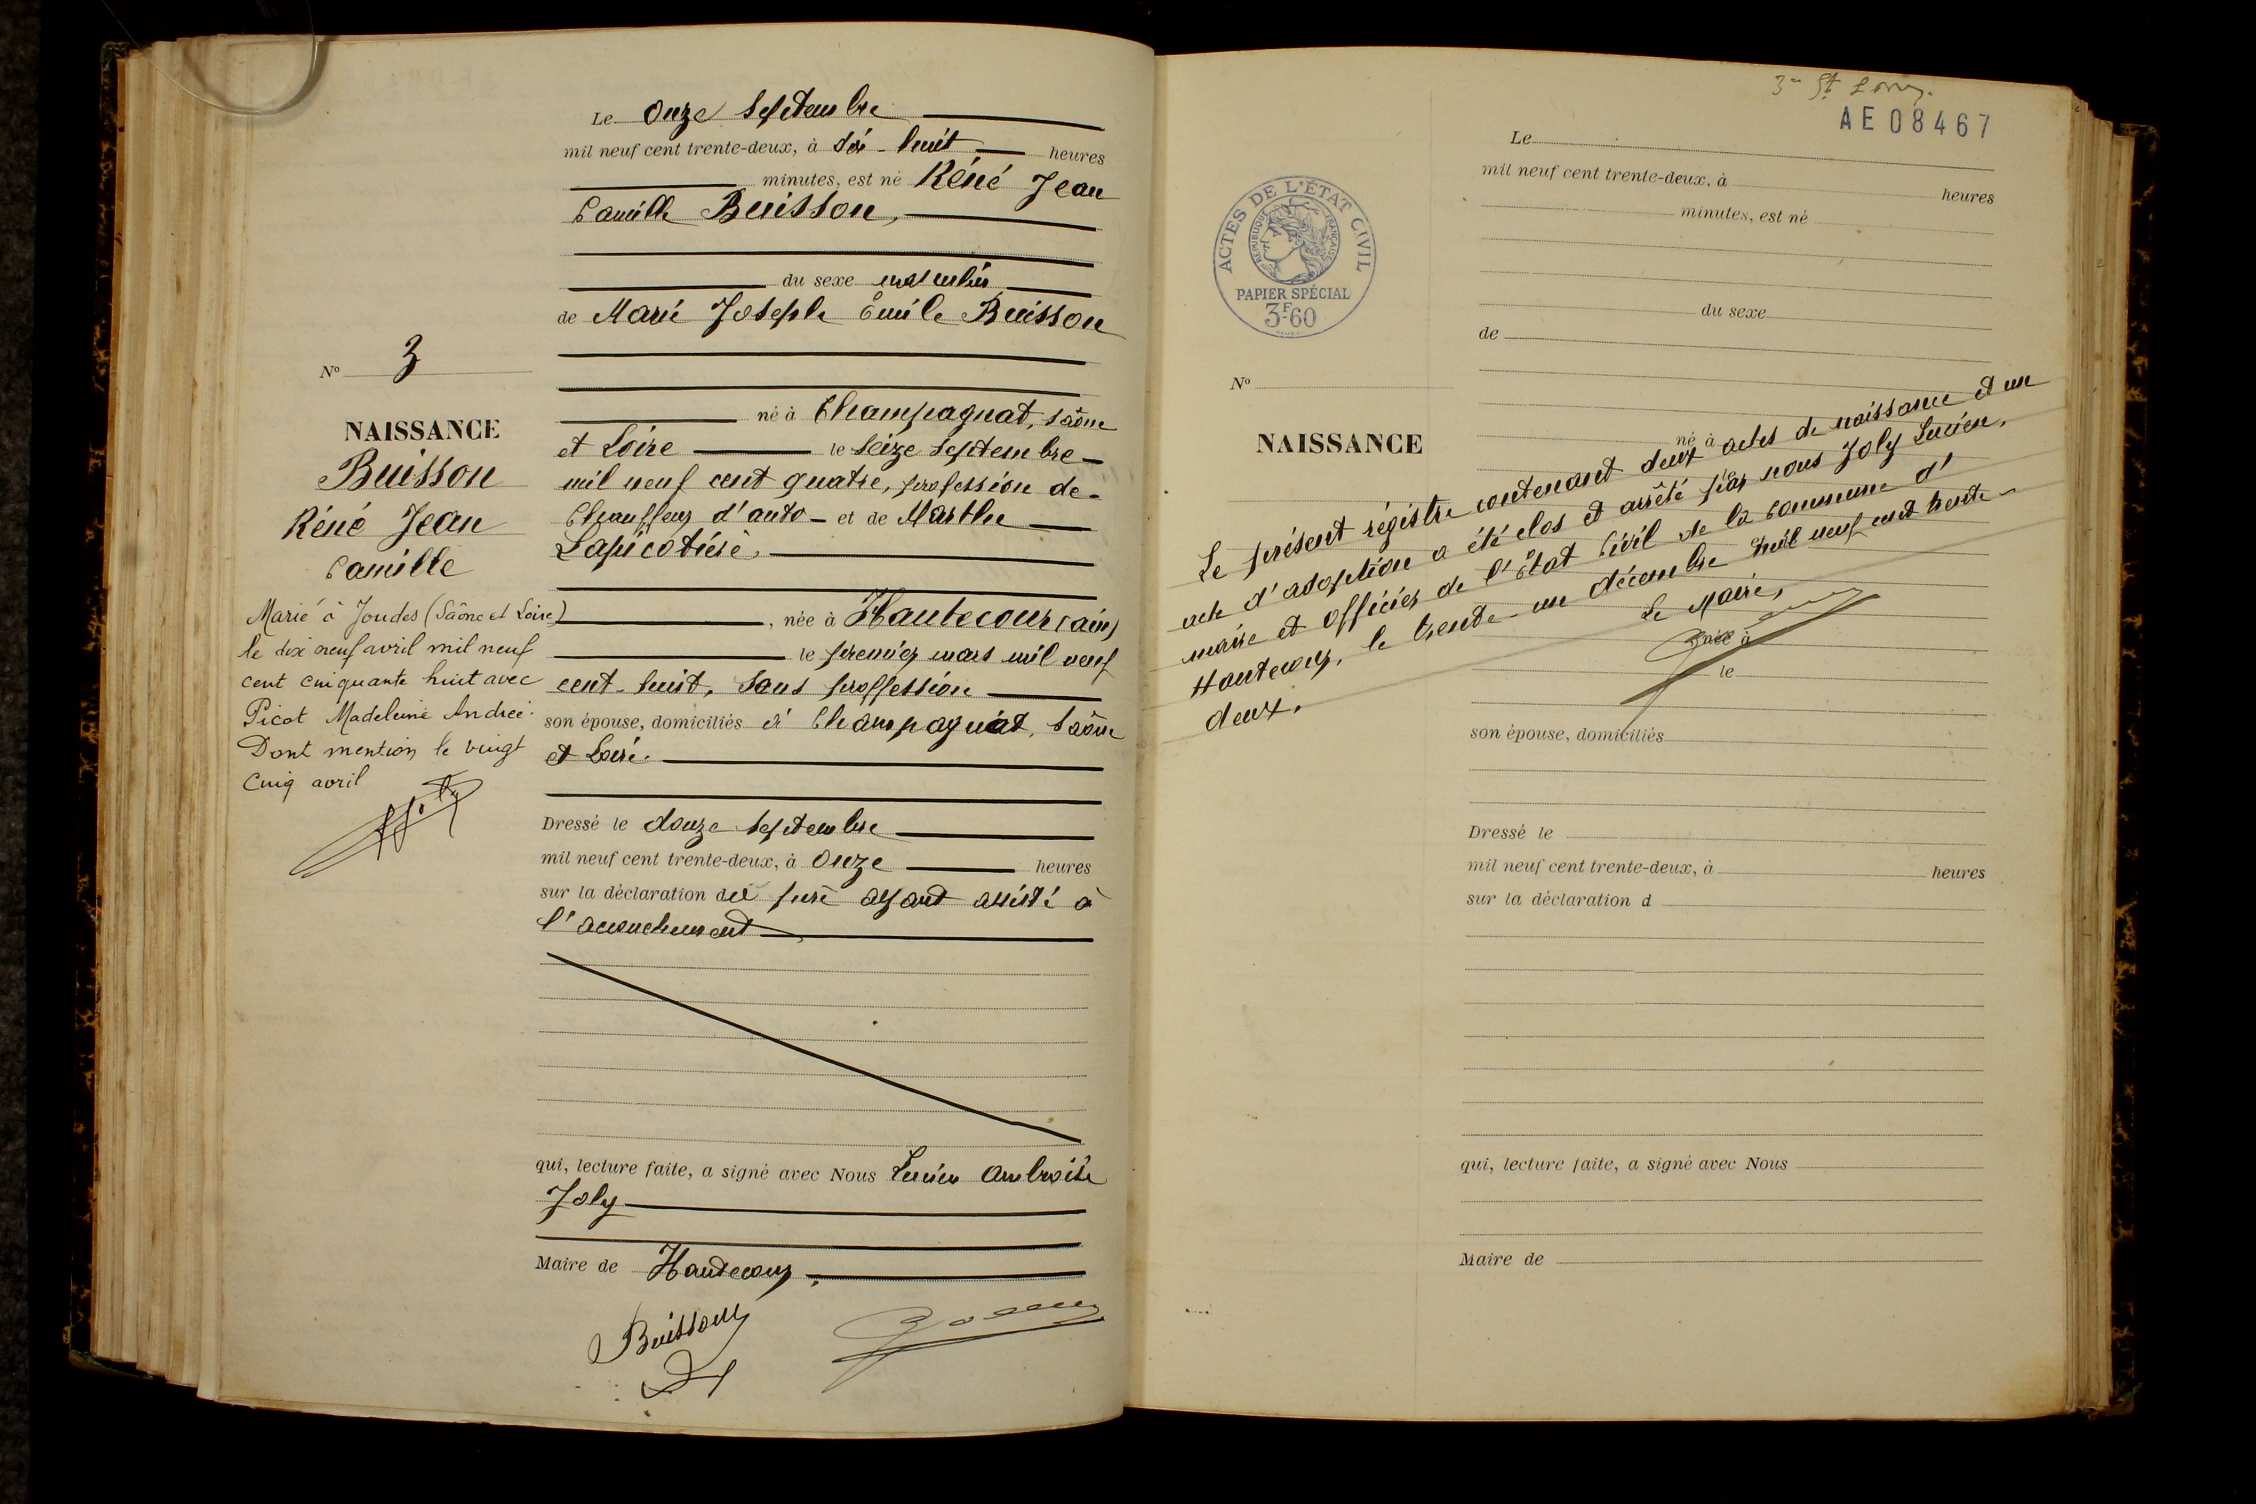 Le onze Septembre
mil neuf cent trente-deux, à dix-huit heures
minutes, est né Réné Jean
Camille Buisson,
du sexe masculin
de Marie Joseph Emile Buisson
N° 3
né à Champagnat, Saône
et Loire le Seize Septembre
NAISSANCE
mil neuf cent quatre, profession de
Buisson
Chauffeur d'auto et de Marthe
Réné Jean
Lapicotière,
Camille
née à Hautecour (ain)
le premier mars mil neuf
cent huit, Sans proffession
son épouse, domiciliés à Champagnat, Saône
et Loire.
Marié à Joudes (Saône et Loire)
le dix neuf avril mil neuf
cent cinquante huit avec
Picot Madeleine Andrée.
Dont mention le vingt
cinq avril
Dressé le douze Septembre
mil neuf cent trente-deux, à Onze heures
sur la déclaration du père ayant assisté à
l'accouchement
qui, lecture faite, a signé avec Nous Lucien Ambroise
Joly
Maire de Hautecour,
Buisson
AE08467
Le
mil neuf cent trente-deux, à heures
minutes, est né
ACTES DE L'ÉTAT CIVIL
RÉPUBLIQUE FRANÇAISE
PAPIER SPÉCIAL
3F60
du sexe
de
N°
né à
NAISSANCE
Le présent régistre contenant deux actes de naissance et un
acte d'adoption a été clos et arrêté par nous Joly Lucien,
maire et officier de l'Etat Civil de la commune d'
Hautecour, le trente-un décembre mil neuf cent trente-
deux.
Le Maire,
née à
le
son épouse, domiciliés
Dressé le
mil neuf cent trente-deux, à heures
sur la déclaration d
qui, lecture faite, a signé avec Nous
Maire de